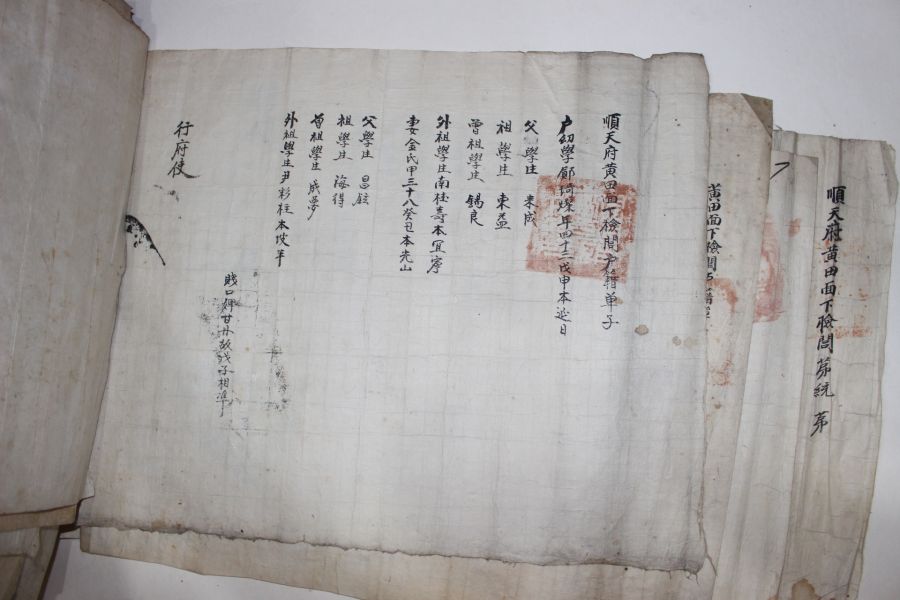 順天府黄田面下檢閭戶籍單子
戶幼學鄭 年四十三戊申本延日
父學生 來成
祖學生 東益
曾祖學生 錫良
外祖學生南 壽本宜寧
妻金氏甲三十八癸丑本光山
父學生 昌鉉
祖學生 海得
曾祖學生 成夢
外祖學生尹 本坡平
賤口婢甘丹故 子相準
行府使
黄田面下檢閭
順天府黄田面下檢閭第統 第